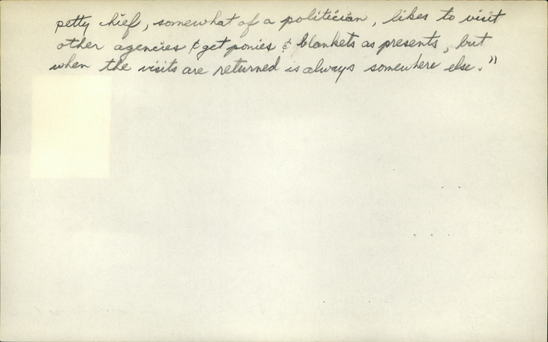 petty chief, somewhat of a politician, likes to visit
other agencies & get ponies & blankets as presents, but
when the visits are returned is always somewhere else."